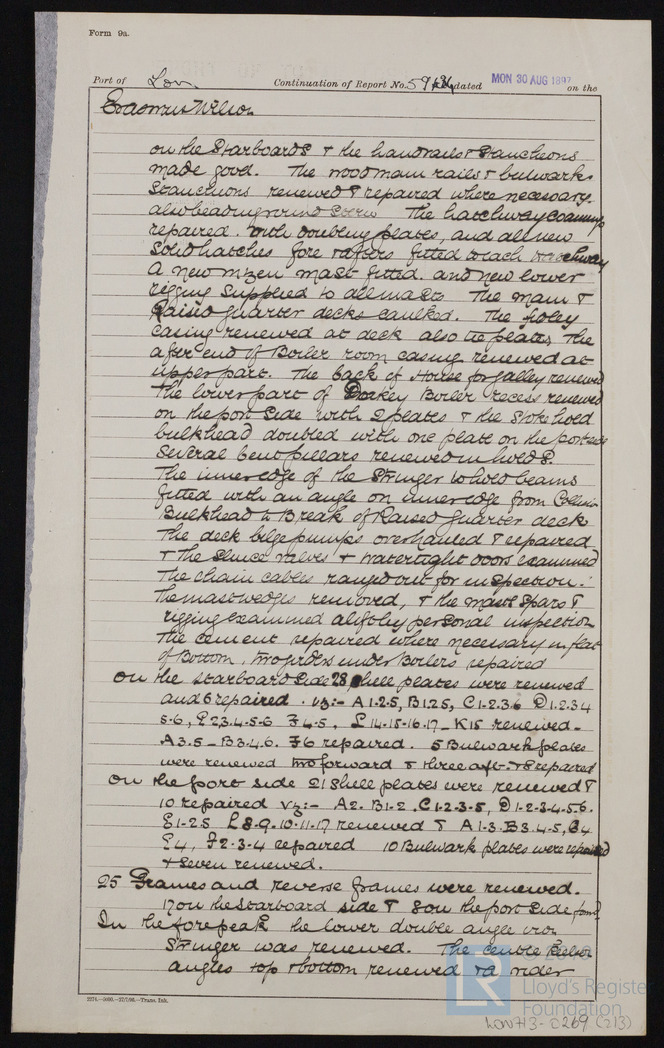 Form 9a.
Port of Lon Continuation of Report No. dated MON 30 AUG 1897 on the
Erasmus Wilson
on the Starboard S & the handrails & Stanchions
made good. The wood main rails & bulwarks
Stanchions renewed & repaired where necessary.
also beading round Stern The hatchway coamings
repaired. with doubling plates, and all new
Solid hatches fore & afters fitted to each hatchway
A new mizen mast fitted. and new lower
rigging supplied to all masts The Main &
Raised quarter decks caulked. The fidley
casing renewed at deck also tie plates The
after end of Boiler room casing renewed at
upper part. The back of House for galley renewed
The lower part of Donkey Boiler recess renewed
on the port side with 2 plates & the Stokehold
bulkhead doubled with one plate on the port side
Several bent pillars renewed in holds.
The inner edge of the Stringer to hold beams
fitted with an angle on inner edge from Collision
Bulkhead to Break of Raised quarter deck
The deck bilge pumps overhauled & repaired
& the Sluice valves & watertight doors examined
The chain cables ranged out for inspection.
The mast wedges removed, & the masts Spars &
rigging examined aloft by personal inspection
The cement repaired where necessary in flat
of Bottom. two girders under Boilers repaired
On the Starboard Side 28 shell plates were renewed
and 6 repaired. viz:- A 1-2-5, B 1.2.5, C 1-2.3.6 D 1.2.3 4
5-6, E 2.3.4-5-6 F 4-5, L 14-15-16-17 - K 15 renewed -
A 3.5 - B 3.4.6. F 6 repaired. 5 Bulwark plates
were renewed two forward & three aft. & 8 repaired
On the port side 21 shell plates were renewed &
10 repaired viz:- A 2. B 1-2. C 1-2-3-5, D 1-2-3-4-5.6.
E 1-2 5 L 8-9.10-11-17 renewed & A 1-3. B 3.4-5, C 4
E 4, F 2-3-4 repaired 10 Bulwark plates were repaired
& Seven renewed.
25 Frames and reverse frames were renewed.
17 on the Starboard side & 8 on the port Side
In the forepeak the lower double angle iron
Stringer was renewed. The centre Keelson
angles top & bottom renewed & a rider
2274.—5000.—27/7/96.—Trans. Ink.
LR
© 2019
Lloyd's Register
Foundation
LON713-0269 (213)